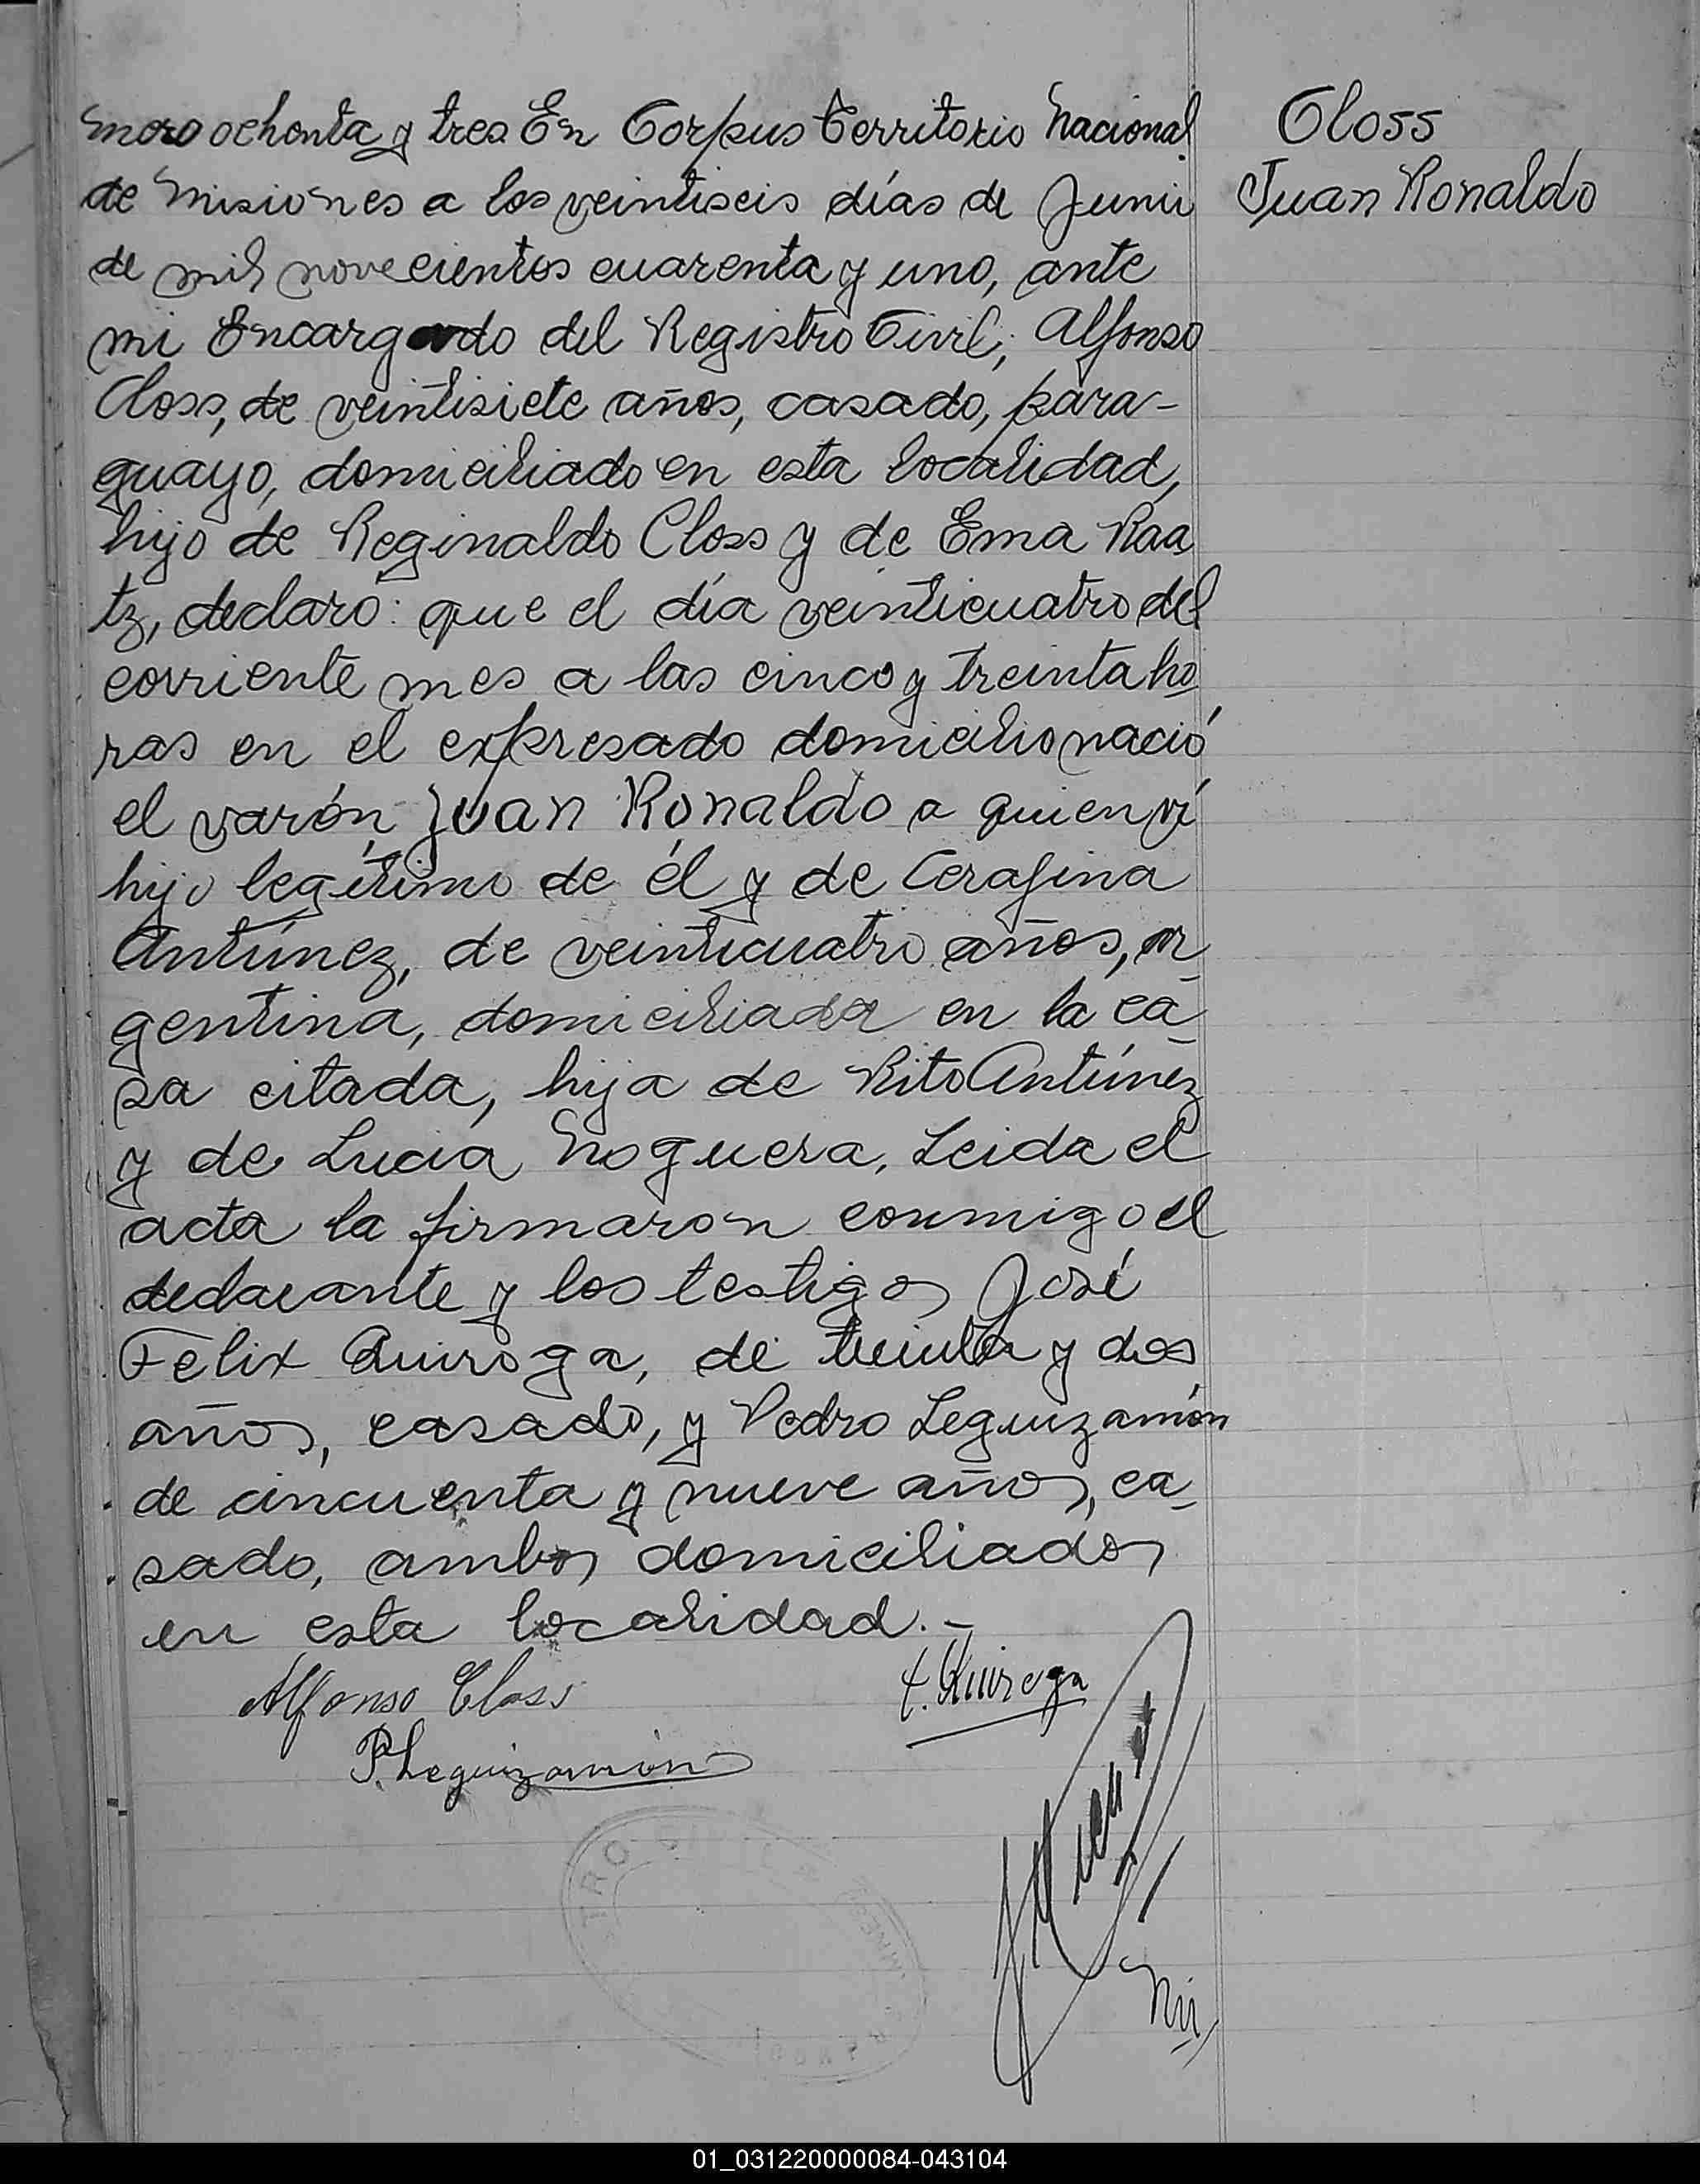 mero ochenta y tres. En Corpus Territorio Nacional
de Misiones a los veintiseis días de Junio
de mil novecientos cuarenta y uno, ante
mi Encargado del Registro Civil; Alfonso
Closs, de veintisiete años, casado, para-
guayo, domiciliado en esta localidad,
hijo de Reginaldo Closs y de Ema Raa
tz, declaró: que el día veinticuatro del
corriente mes a las cinco y treinta ho
ras en el expresado domicilio nació
el varón, Juan Ronaldo a quien ví
hijo legítimo de él y de Cerafina
Antúnez, de veinticuatro años, ar
gentina, domiciliada en la ca
sa citada, hija de Rito Antúnez
y de Lucia Noguera. Leida el
acta la firmaron conmigo el
declarante y los testigos José
Felix Quiroga, de treinta y dos
años, casado, y Pedro Leguizamón
de cincuenta y nueve años, ca
sado, ambos domiciliados
en esta localidad.-
Closs
Juan Ronaldo
Alfonso Closs
F. Quiroga
P. Leguizamón
TRO
01_031220000084-043104